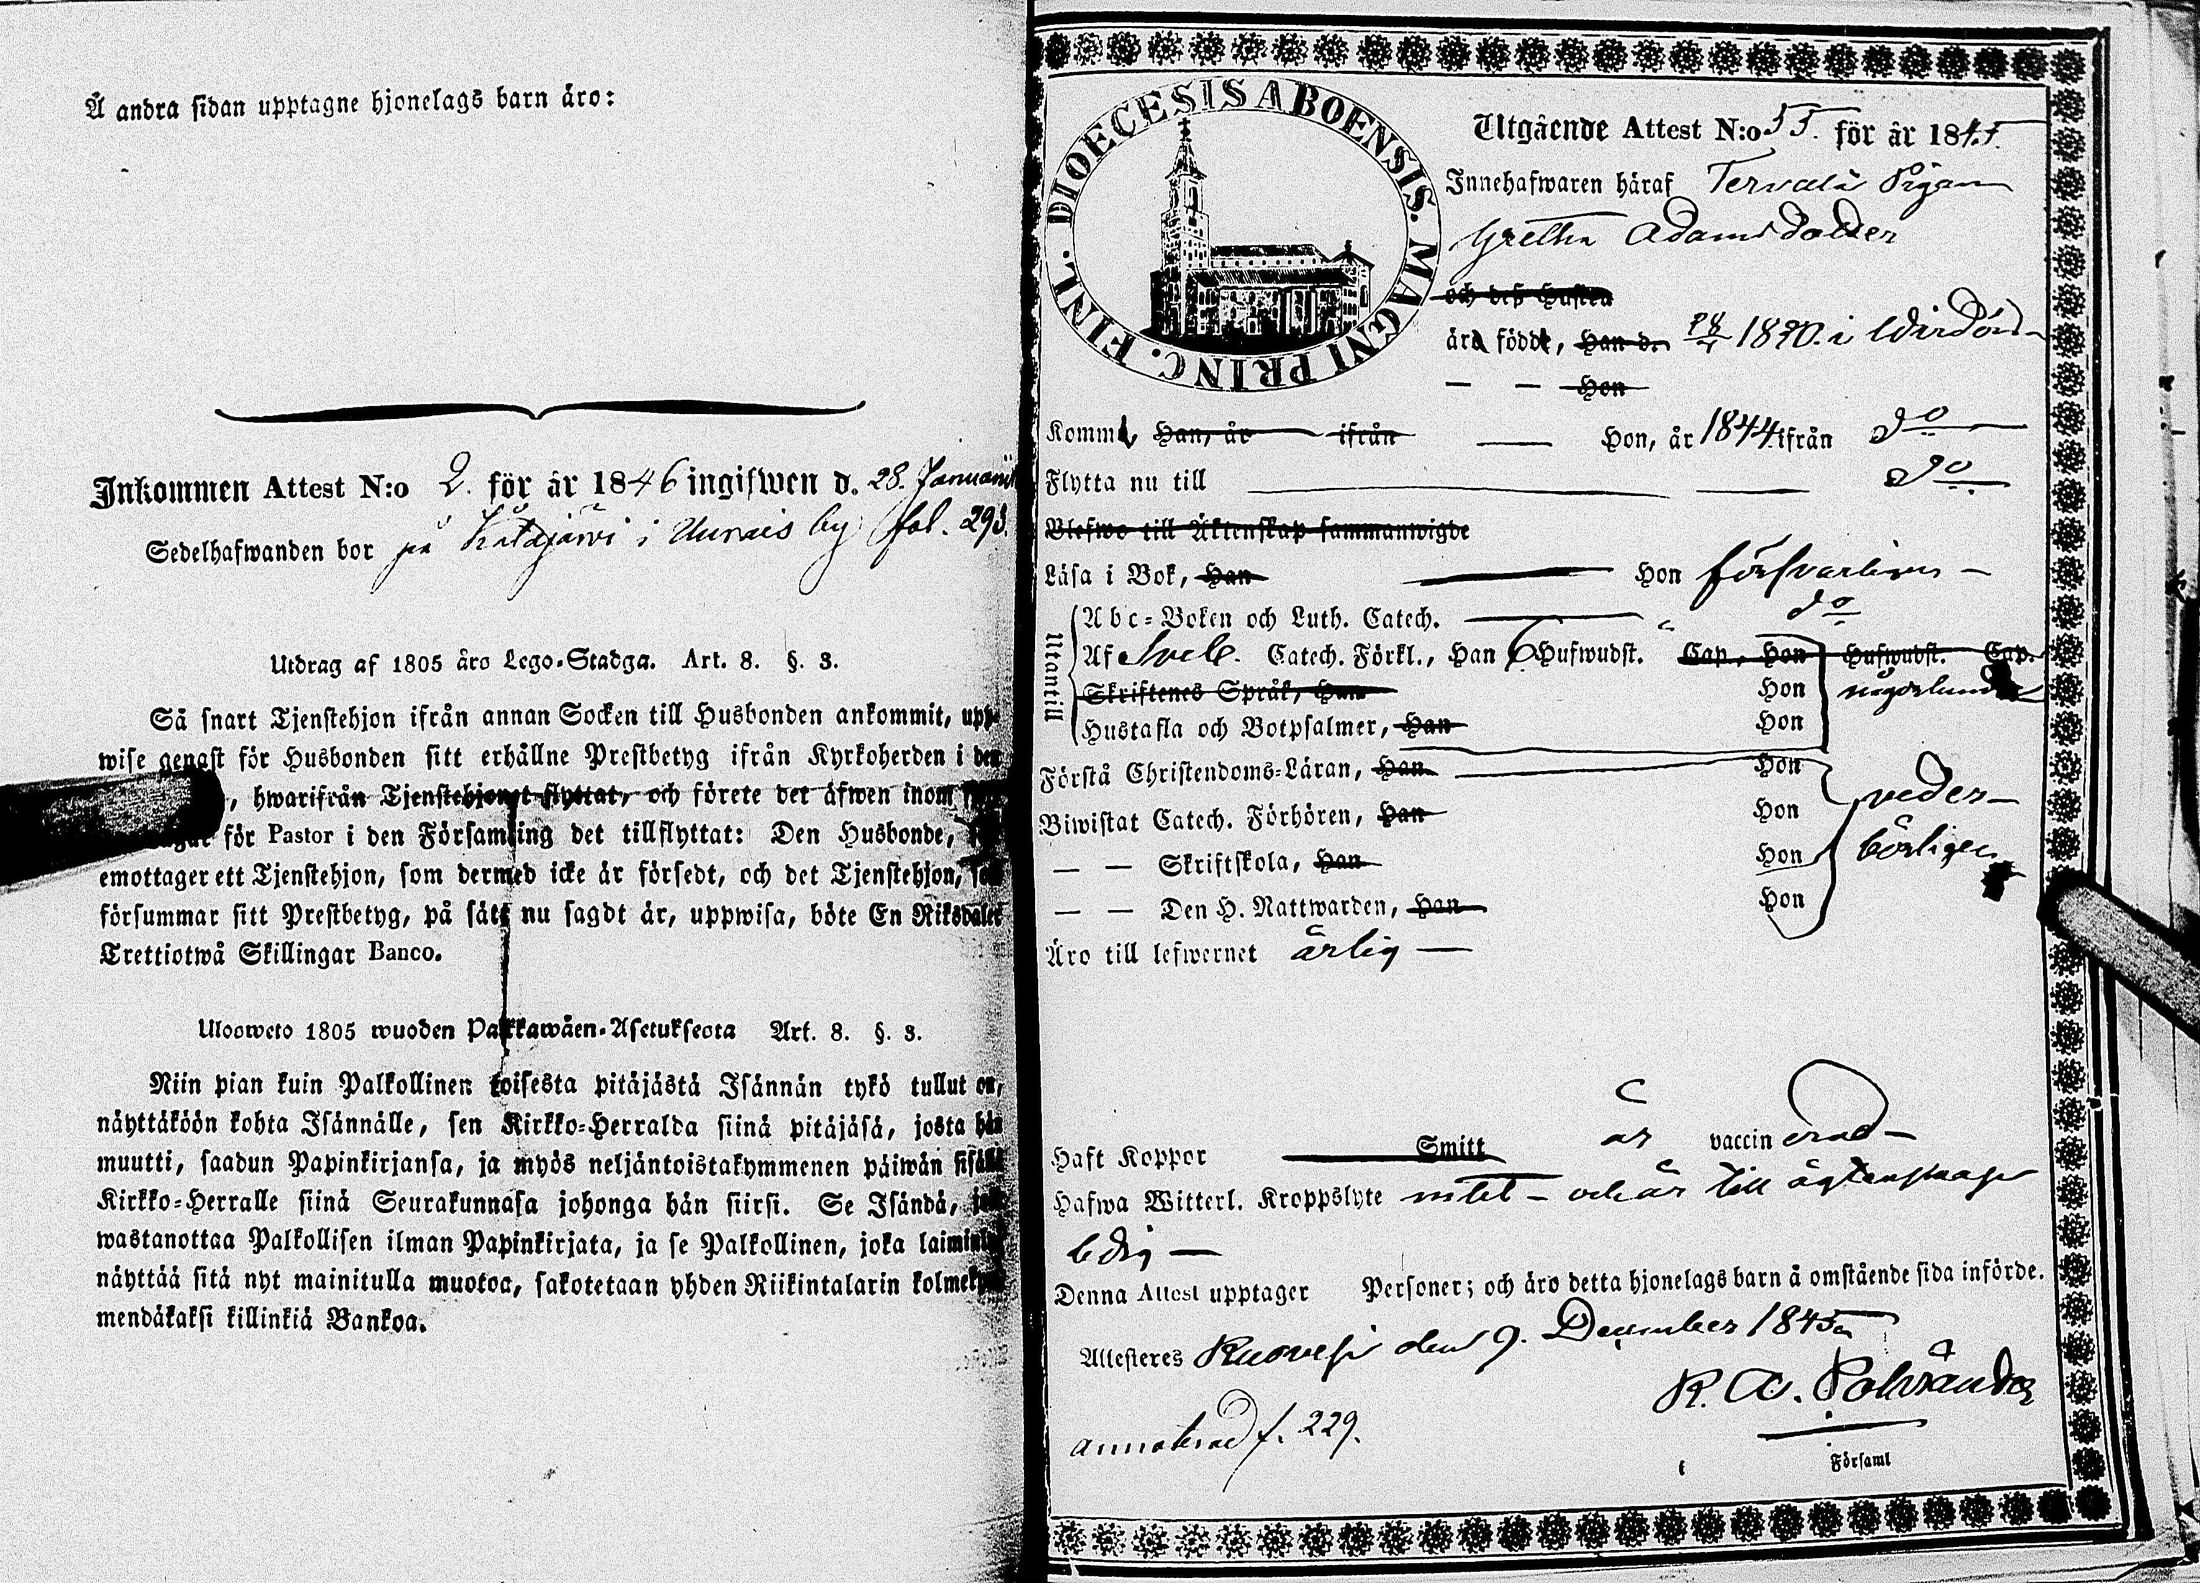 Å andra sidan upptagne hjonelags barn äro:
Inkommen Attest N:o 2. för år 1846 ingifwen d. 28. Januarii
Sedelhafwanden bor på Katajärvi i Unnais by fol. 293.
Utdrag af 1805 års Lego-Stadga. Art. 8. §. 3.
Så snart Tjenstehjon ifrån annan Socken till Husbonden ankommit, upp-
wise genast för Husbonden sitt erhållne Prestbetyg ifrån Kyrkoherden i den
, hwarifrån Tjenstehjonet flyttat, och förete det äfwen inom
för Pastor i den Församling det tillflyttat: Den Husbonde,
emottager ett Tjenstehjon, som dermed icke är försedt, och det Tjenstehjon, som
försummar sitt Prestbetyg, på sätt nu sagdt är, uppwisa, böte En Riksdaler
Trettiotwå Skillingar Banco.
Ulosweto 1805 wuoden Palkkawäen-Asetuksesta Art. 8. §. 3.
Niin pian kuin Palkollinen toisesta pitäjästä Isännän tykö tullut on,
näyttäköön kohta Isännälle, sen Kirkko-Herralda siinä pitäjäsä, josta hän
muutti, saadun Papinkirjansa, ja myös neljäntoistakymmenen päiwän sisällä
Kirkko-Herralle siinä Seurakunnasa johonga hän siirsi. Se Isändä, joka
wastanottaa Palkollisen ilman Papinkirjata, ja se Palkollinen, joka laiminlyö
näyttää sitä nyt mainitulla muotoa, sakotetaan yhden Riikintalarin kolmekym-
mendäkaksi killinkiä Bankoa.
DIOECESIS ABOENSIS. MAGNI PRINC. FINL.
Utgående Attest N:o 55. för år 1845.
Innehafwaren häraf Tervala Pigan
Gretha Adamsdotter
och dess Hustru
äro födde, Han d. 1820. i Wirdois
— — Hon
Komm Han, år ifrån — Hon, år 1844 ifrån do
Flytta nu till do
Blefwo till Äktenskap sammanwigde
Läsa i Bok, Han Hon försvarligen
Utantill
Abc-Boken och Luth. Catech. do
Af Sveb. Catech. Förkl., Han 6 Hufwudst. Cap., Hon Hufwudst. Cap.
Skriftenes Språk, Han Hon någorlunda
Hustafla och Botpsalmer, Han Hon
Förstå Christendoms-Läran, Han Hon
Biwistat Catech. Förhören, Han Hon veder-
— — Skriftskola, Han Hon börligen
— — Den H. Nattwarden, Han Hon
Äro till lefwernet ärlig
Haft Koppor Smitt är vaccinerad
Hafwa Witterl. Kroppslyte intet — och är till ägtenskap
ledig
Denna Attest upptager Personer; och äro detta hjonelags barn å omstående sida införde.
Attesteres Ruovesi den 9. December 1845
Församl
f. 229.